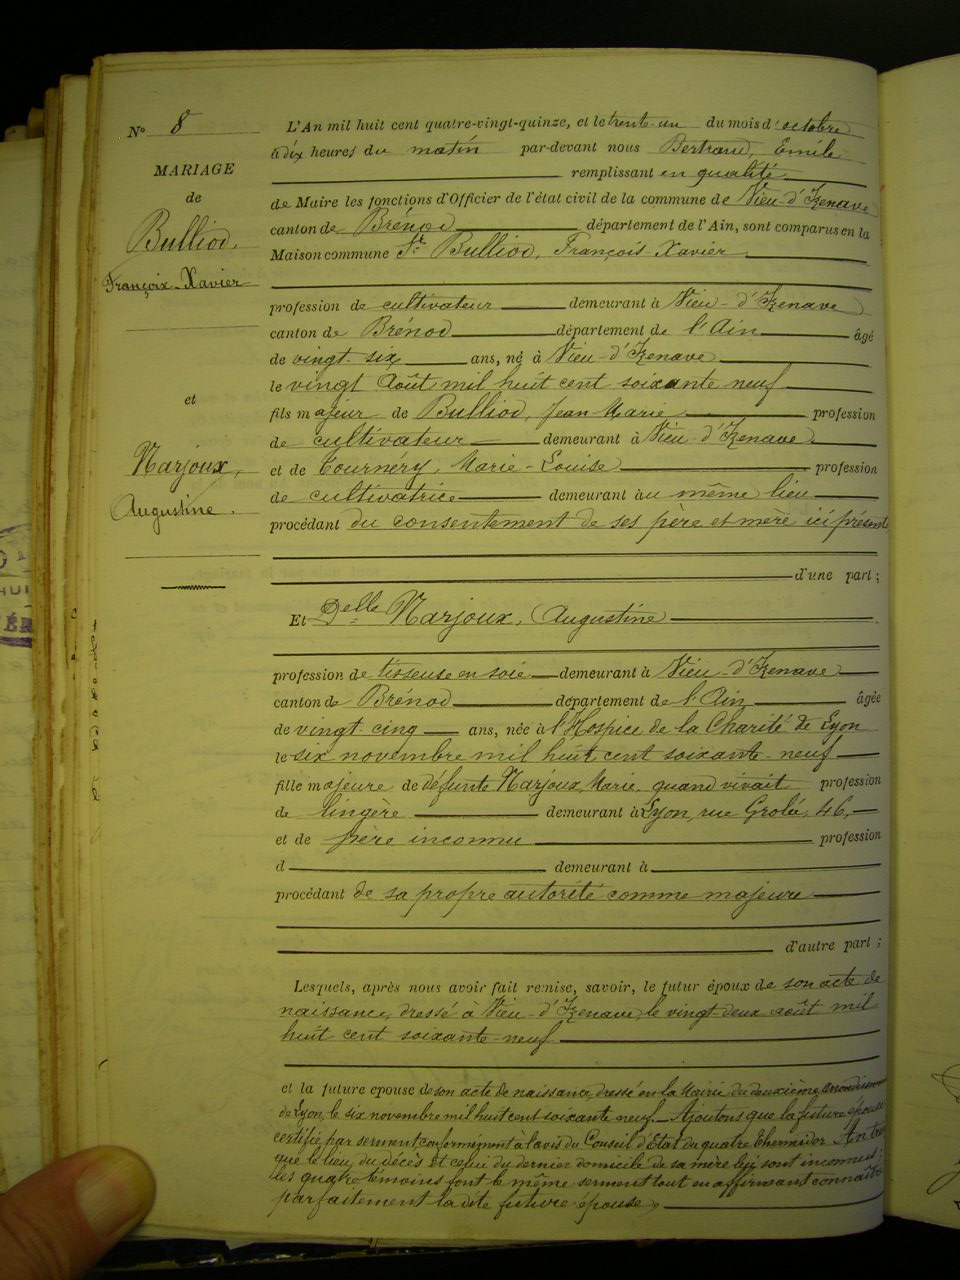 N° 8
MARIAGE
de
Bulliod,
François-Xavier
et
Marjoux,
Augustine.
L'An mil huit cent quatre-vingt-quinze, et le trente-un du mois d'octobre
à dix heures du matin par-devant nous Bertrand, Emile
remplissant en qualité
de Maire les fonctions d'Officier de l'état civil de la commune de Vieu-d'Izenave
canton de Brénod département de l'Ain, sont comparus en la
Maison commune Sr Bulliod, François-Xavier
profession de cultivateur demeurant à Vieu-d'Izenave
canton de Brénod département de l'Ain âgé
de vingt-six ans, né à Vieu-d'Izenave
le vingt Août mil huit cent soixante neuf
fils majeur de Bulliod, Jean Marie profession
de cultivateur demeurant à Vieu-d'Izenave
et de Tournéry, Marie-Louise profession
de cultivatrice demeurant au même lieu
procédant du consentement de ses père et mère ici présents
d'une part ;
Et Delle Marjoux, Augustine
profession de tisseuse en soie demeurant à Vieu-d'Izenave
canton de Brénod département de l'Ain âgée
de vingt-cinq ans, née à l'Hospice de la Charité de Lyon
le six novembre mil huit cent soixante-neuf
fille majeure de défunte Marjoux, Marie, quand vivait profession
de lingère demeurant à Lyon, rue Grolée, 46,
et de père inconnu profession
d demeurant à
procédant de sa propre autorité comme majeure
d'autre part ;
Lesquels, après nous avoir fait remise, savoir, le futur époux de son acte de
naissance, dressé à Vieu-d'Izenave le vingt-deux août mil
huit cent soixante-neuf
et la future epouse de son acte de naissance, dressé en la Mairie du deuxième Arrondissement
de Lyon, le six novembre mil huit cent soixante neuf. Ajoutons que la future épouse
certifie par serment, conformément à l'avis du Conseil d'Etat du quatre thermidor An treize
que le lieu du décès et celui du dernier domicile de sa mère lui sont inconnus ;
les quatre témoins font le même serment tout en affirmant connaître
parfaitement la dite future épouse,